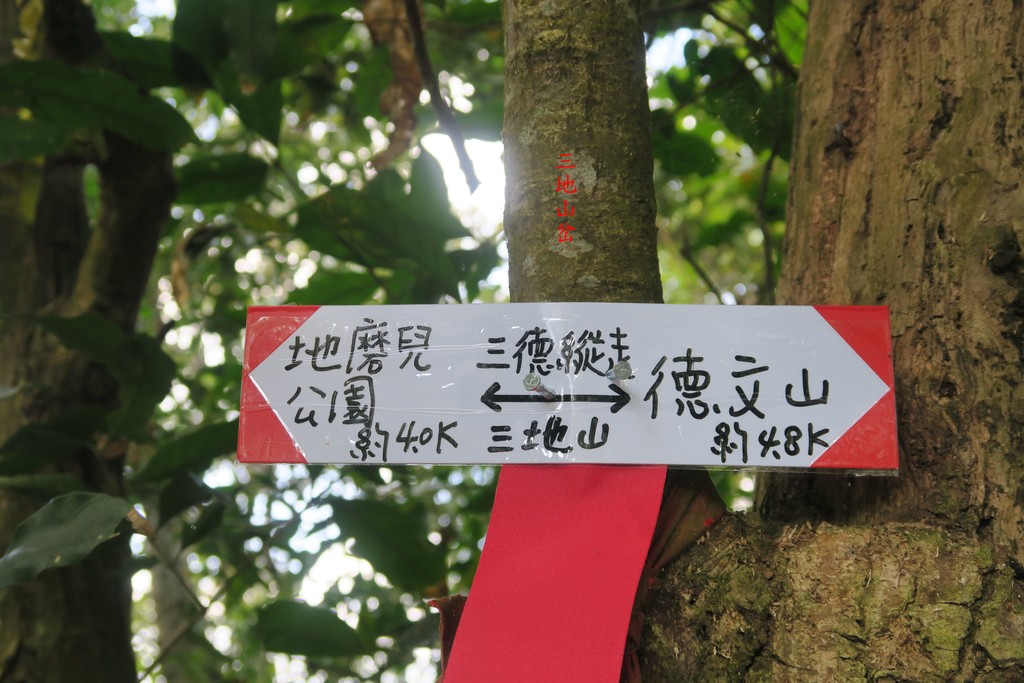 三地山岔
地磨兒
公園
約4.0K
三德縱走
三地山
德文山
約4.8K